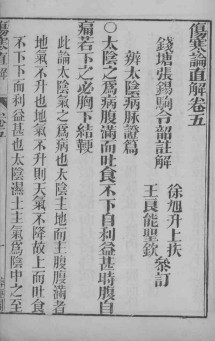 傷寒論直解卷五
錢塘張錫駒令韶註解
徐旭升上扶
王良能聖欽
參訂
辨太陰病脉證篇
○太陰之爲病腹滿而吐食不下自利益甚時腹自
痛若下之必胸下結鞕
此論太陰氣之爲病也太陰主地而主腹腹滿者
地氣不升也地氣不升則天氣不降故上而吐食
不下下而利益甚也太陰濕土主氣爲陰中之至
傷寒直解
卷五